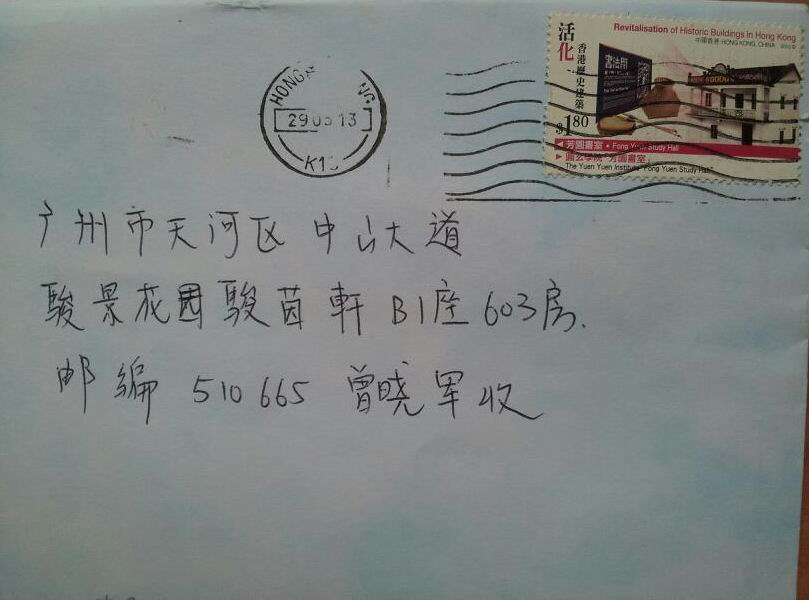 活化
香港歷史建築
Revitalisation of Historic Buildings in Hong Kong
中國香港 HONG KONG, CHINA
書法間
$1.80
芳園書室 • Fong Yuen Study Hall
圓玄學院「芳園書室」
The Yuen Yuen Institute "Fong Yuen Study Hall"
HONG
29 03 13
K1
广州市天河区中山大道
駿景花园駿茵軒B1座603房.
邮编 510665 曾晓军收